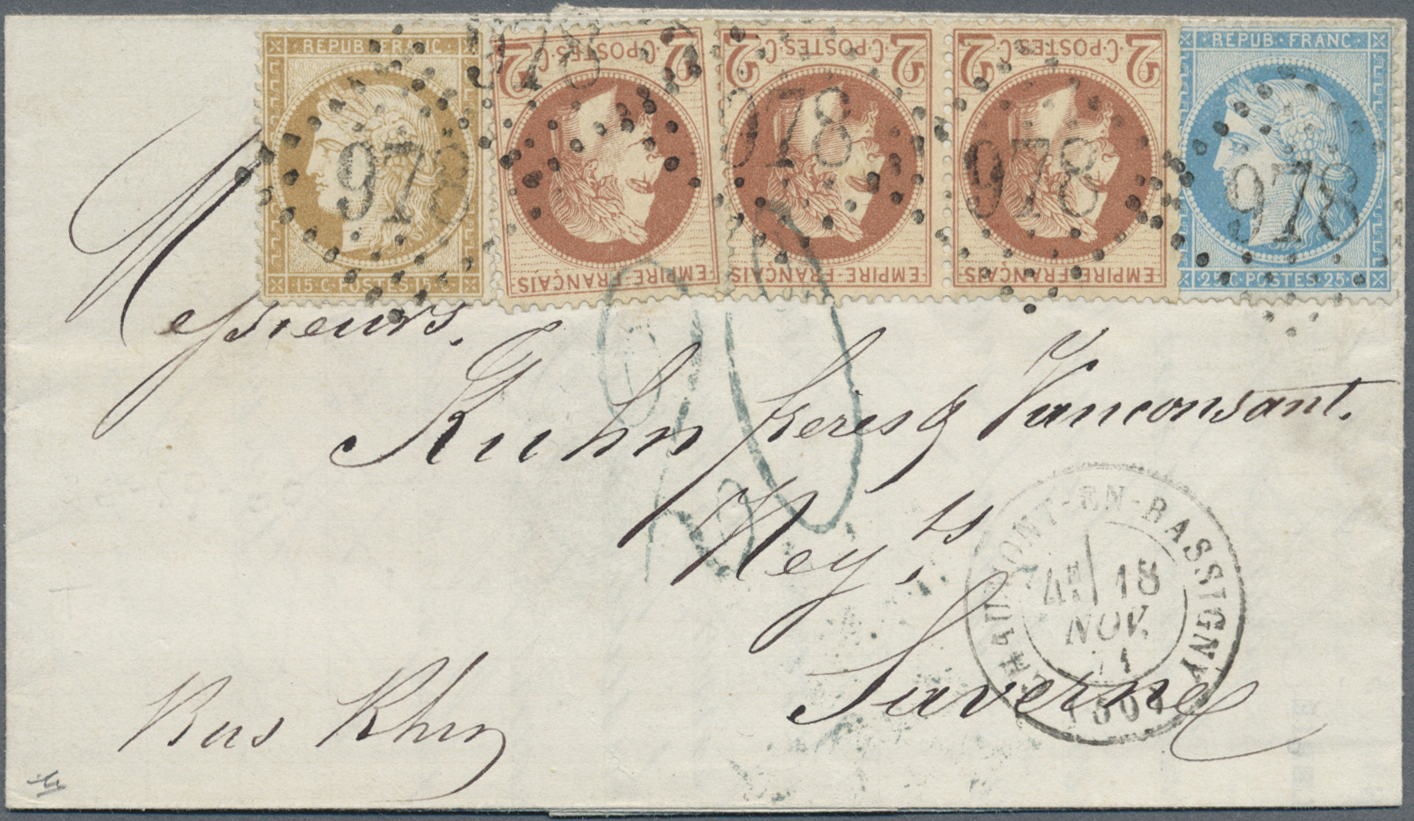 REPUB·FRANC·
15·C·POSTES·15·C
2·C·POSTES·2
EMPIRE·FRANÇAIS·
2·C·POSTES·2
EMPIRE·FRANÇAIS·
2·C·POSTES·2
EMPIRE·FRANÇAIS·
REPUB·FRANC·
25·C·POSTES·25·C
978
978
978
978
978
Messieurs.
Kuhn freres & Vanconsant.
Neg.ts
Saverne
Bas Rhin
CHAUMONT-EN-BASSIGNY
18
NOV.
71